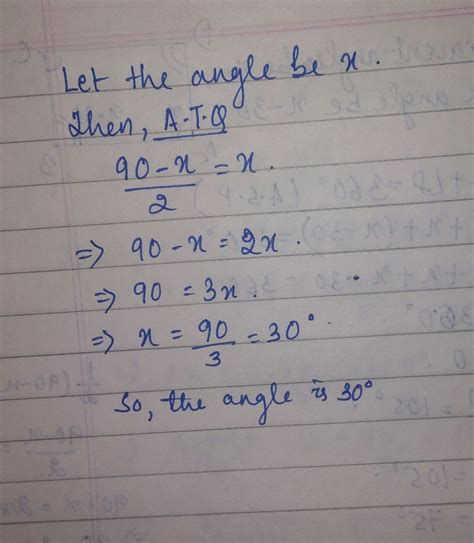 Let the angle be x.
Then, A.T.Q
90-x/2 = x.
=> 90-x = 2x.
=> 90 = 3x.
=> x = 90/3 = 30°.
So, the angle is 30°